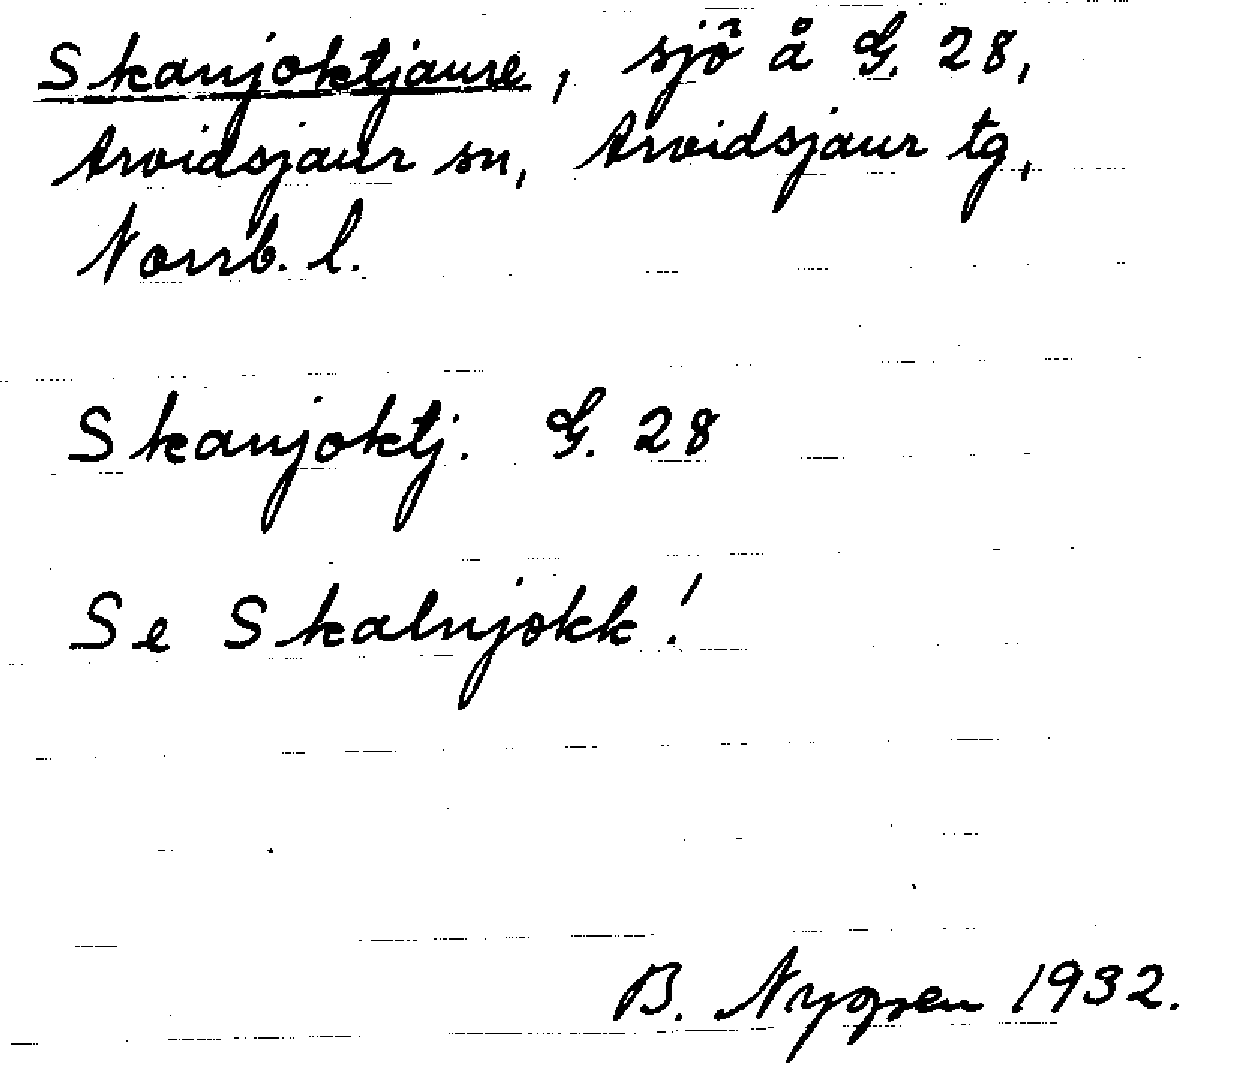 Skanjoktjaure, sjö å G. 28,
Arvidsjaur sn, Arvidsjaur tg,
Norrb. l.
Skanjoktj. G. 28
Se Skalnjokk!
B. 1932.